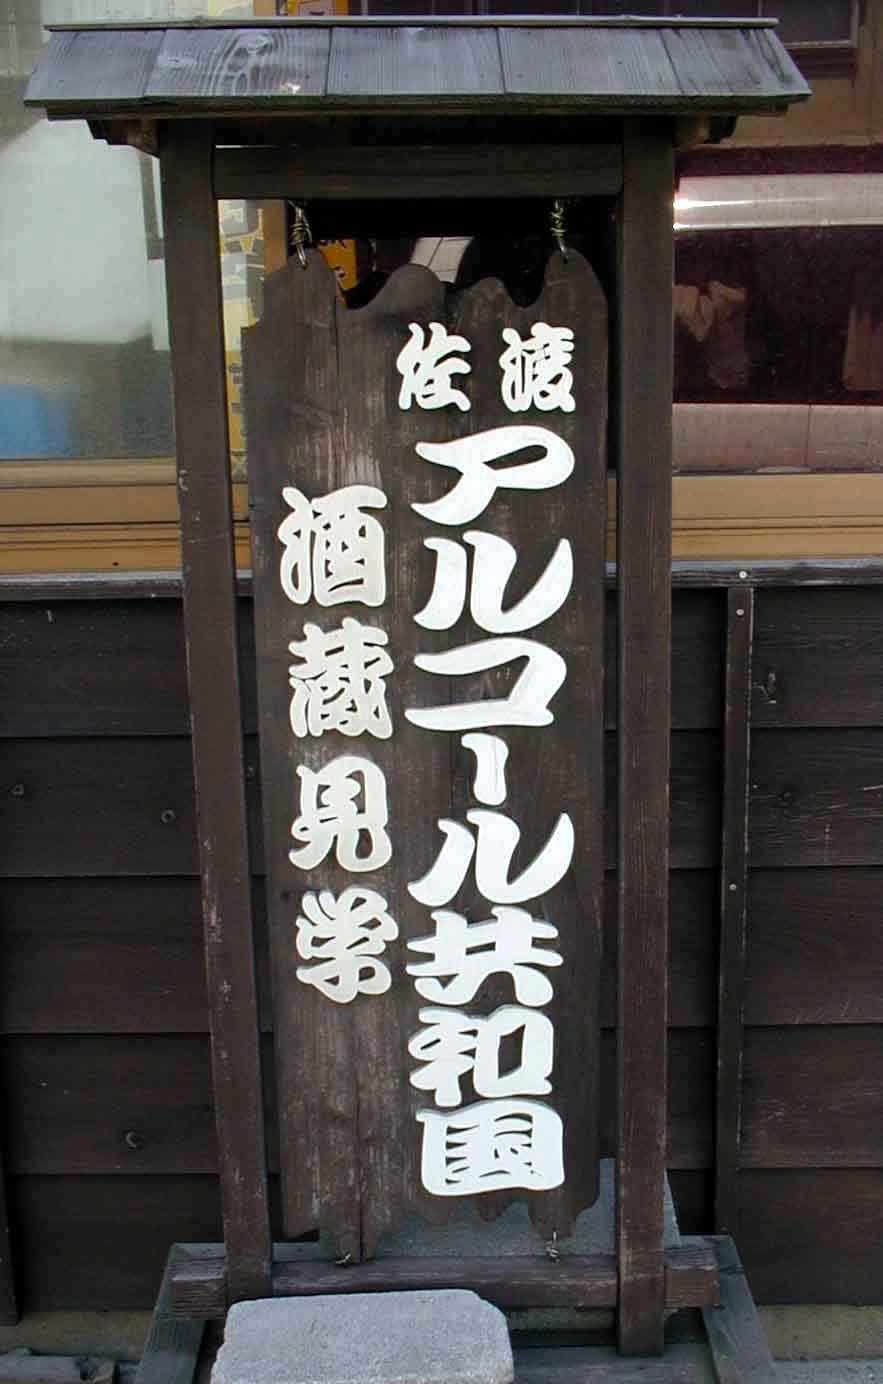 佐渡
アルコール共和国
酒蔵見学